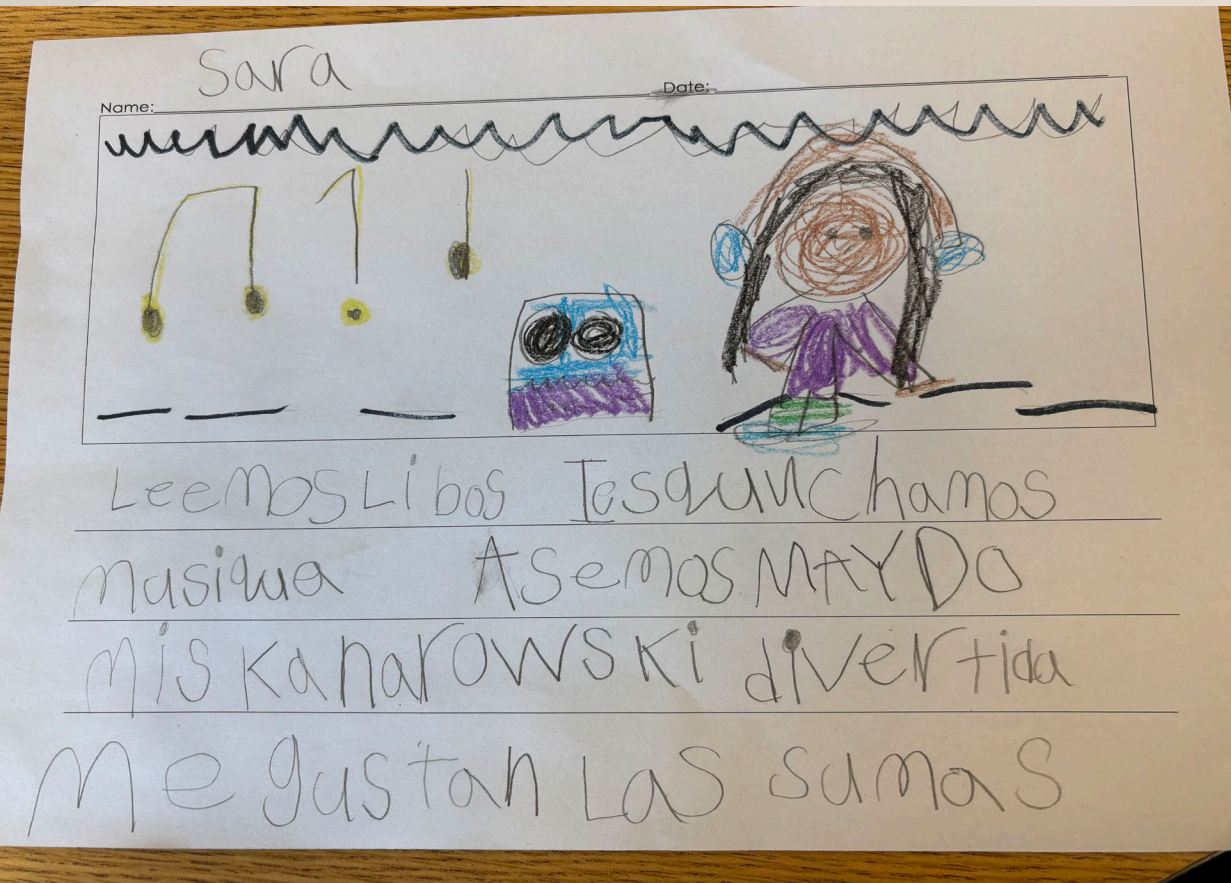 Sara
Name: Date:
Leemos Libos Iesqunchamos
musiqua Asemos MAYDO
mis kanarowski divertida
Me gustan Las sumas